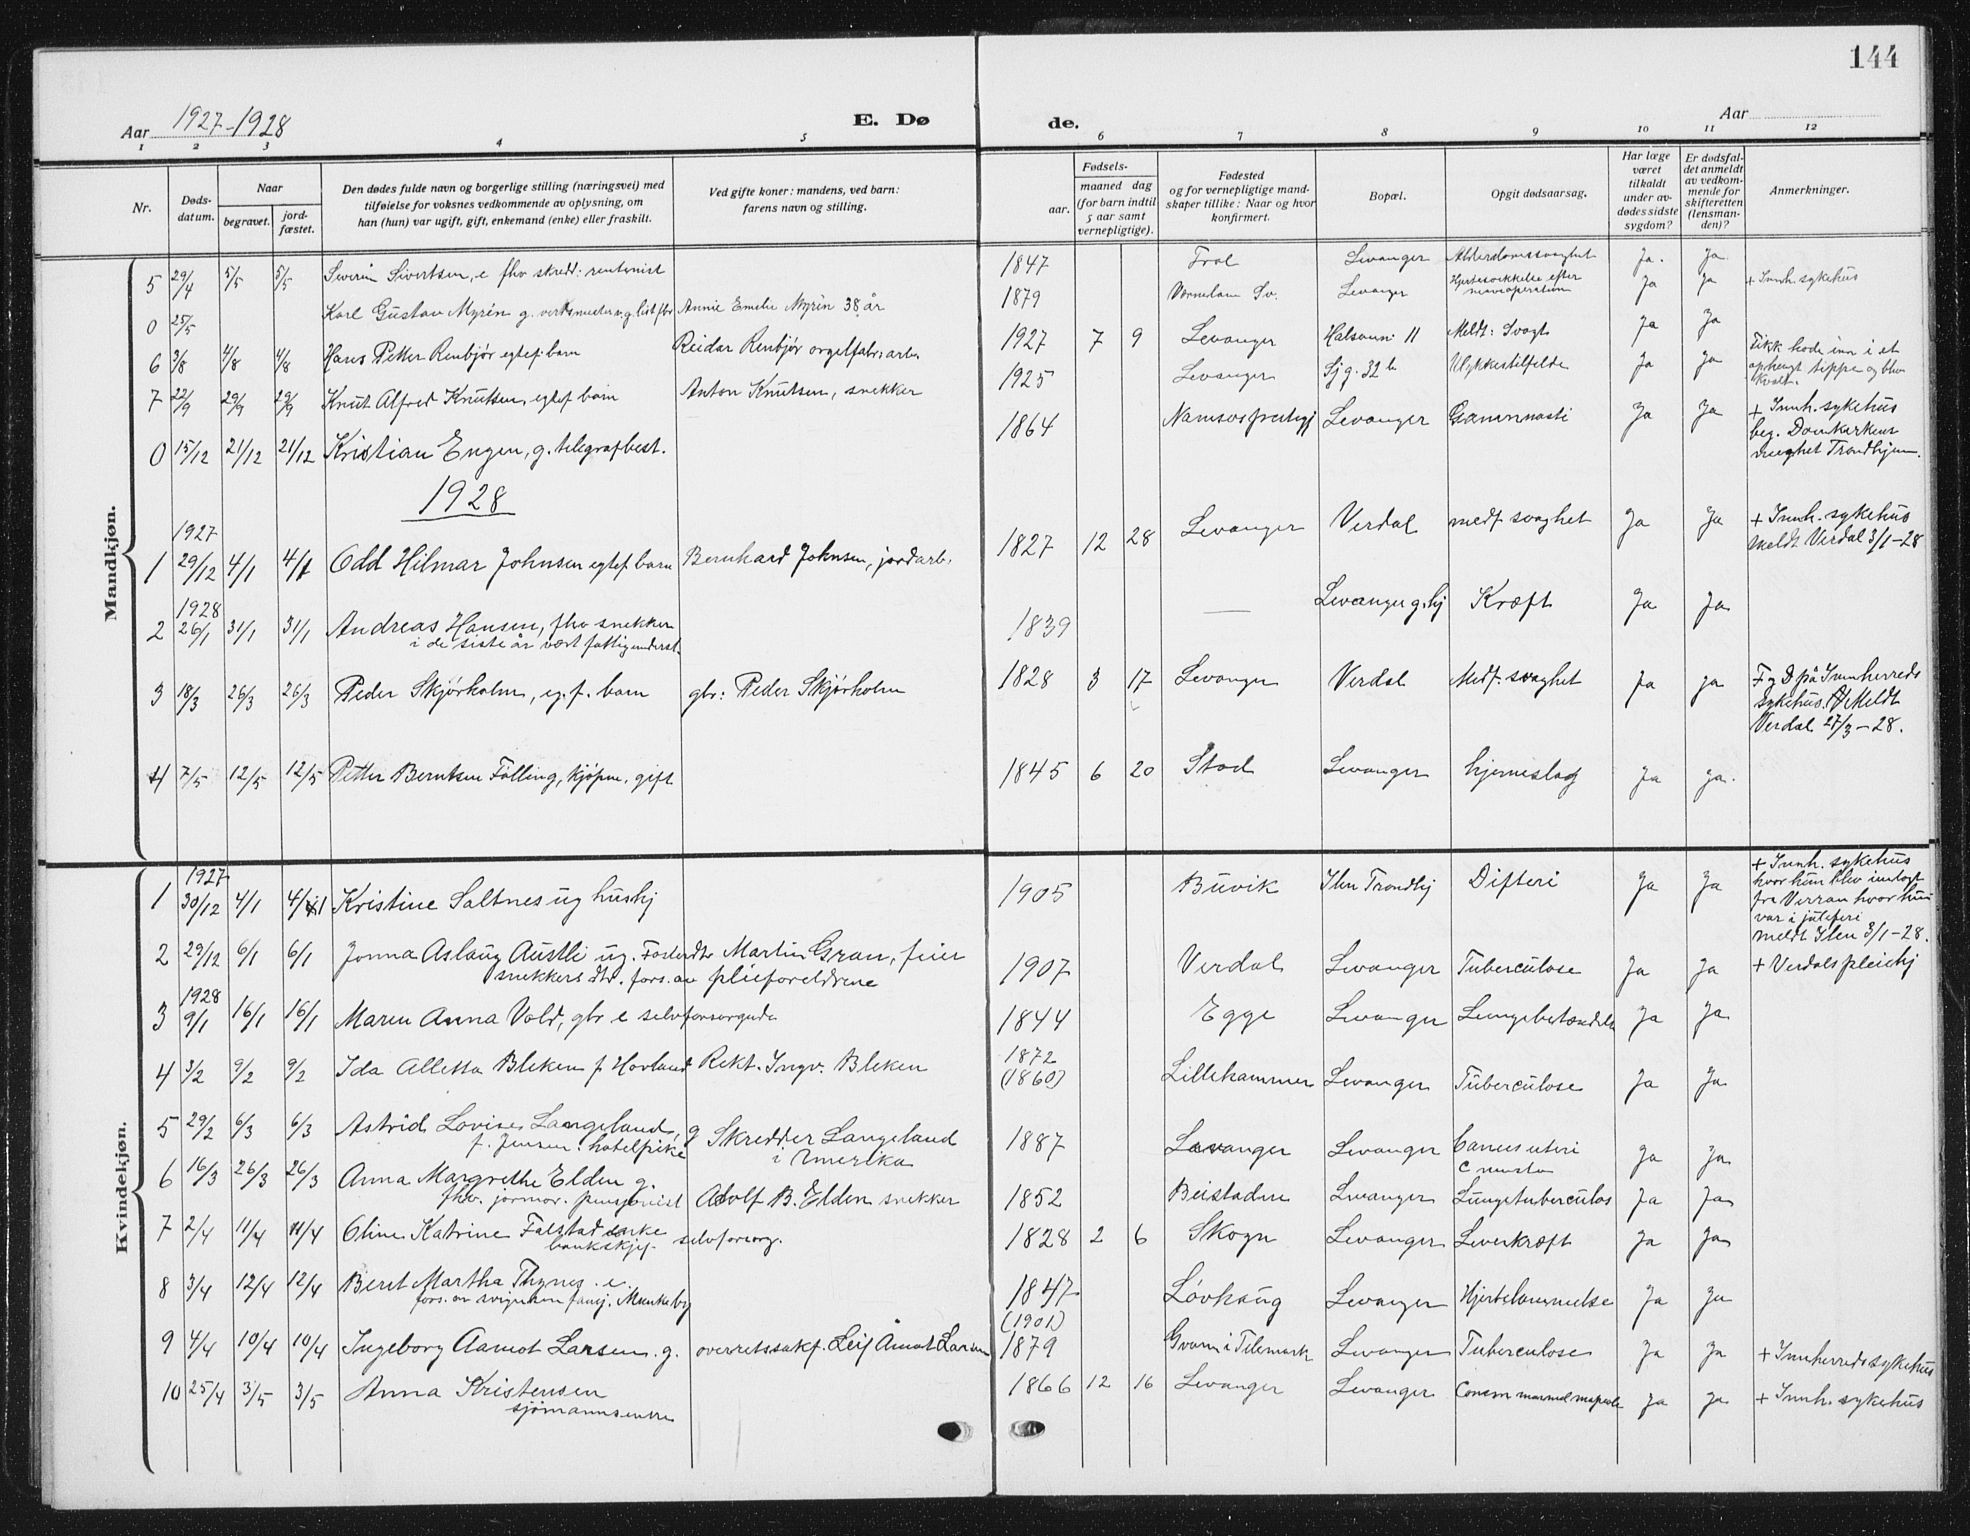 144
Aar 1927-1928 E. Dø de. Aar
1 2 3 4 5 6 7 8 9 10 11 12
Nr. Døds-datum. Naar begravet. jord-fæstet. Den dødes fulde navn og borgerlige stilling (næringsvei) med tilføielse for voksnes vedkommende av oplysning, om han (hun) var ugift, gift, enkemand (enke) eller fraskilt. Ved gifte koner: mandens, ved barn: farens navn og stilling. Fødsels- aar. maaned dag (for barn indtil 5 aar samt vernepligtige). Fødested og for vernepligtige mand-skaper tillike: Naar og hvor konfirmert. Bopæl. Opgit dødsaarsag. Har læge været tilkaldt under av-dødes sidste sygdom? Er dødsfal-det anmeldt av vedkom-mende for skifteretten (lensman-den)? Anmerkninger.
Mandkjøn.
5 29/4 5/5 5/5 Severin Sivertsen, e fhv skredd: rentenist 1847 Frol Levanger Alderdomssvaghet Ja. Ja
0 25/5 Karl Gustav Myrén g. Annie Emelie Myrén 38 år 1879 Levanger Hjertesvekkelse efter maveoperation Ja Ja + Innh. sykehus
6 3/8 4/8 4/8 Hans Petter Renbjør egtef. barn Reidar Renbjør orgelfabr. arb. 1927 7 9 Levanger Halsanv: 11 Medf: Svagt Ja Ja
7 22/9 29/9 29/9 Knut Alfred Knutsen, egtef barn Anton Knutsen, snekker 1925 Levanger Sjg. 32 b Ulykkestilfelde Ja Ja Fikk hode inn i et ophengt tippe og blev kvalt.
0 15/12 21/12 21/12 Kristian Engen, g. telegrafbest. 1864 Levanger Ja Ja + Innh. sykehus beg. Domkirkens Trondhjem.
1928
1927
1 29/12 4/1 4/1 Odd Hilmar Johnsen egtef. barn Bernhard Johnsen, jordarb. 1827 12 28 Levanger Verdal medf svaghet Ja Ja + Innh. sykehus meldt Verdal 3/1-28
1928
2 26/1 31/1 31/1 Andreas Hansen, fhv snekker 1839 — Levanger g.hj Kræft Ja Ja
i de siste år vært fattigunderst.
3 18/3 26/3 26/3 Peder Skjørholm, eg. f. barn gbr: Peder Skjørholm 1828 3 17 Levanger Verdal Medf. svaghet Ja Ja F og D på Innherreds sykehus. Meldt Verdal 27/3-28.
4 7/5 12/5 12/5 Petter Berntsen Følling, kjøpm. gift 1845 6 20 Stod Levanger hjerneslag Ja Ja.
Kvindekjøn.
1927
1 30/12 4/1 4/1 Kristine Saltnes ug hushj 1905 Buvik Ilen Trondhj Difteri Ja Ja + Innh. sykehus hvor hun blev innlagt fra Verran hvor hun var i juleferi meldt Ilen 3/1-28.
2 29/12 6/1 6/1 Jonna Aslaug Austli ug. Fosterdtr Martin Gran, feier 1907 Verdal Levanger Tuberculose Ja Ja + Verdals pleiehj
snekkers dtr. fors. av pleieforeldrene
1928
3 9/1 16/1 16/1 Maren Anna Vold, gbr e selvforsørgende 1844 Egge Levanger Lungebetændelse Ja Ja
4 3/2 9/2 9/2 Ida Alletta Bleken f Hovland Rekt. Ingv. Bleken 1872 (1860) Lillehammer Levanger Tuberculose Ja Ja
5 29/2 6/3 6/3 Astrid Lovise Langeland, g Skredder Langeland i Amerika 1887 Levanger Levanger Cancer uteri Ja Ja
f. Jensen. hotelpike
6 16/3 26/3 26/3 Anna Margrethe Elden g. Adolf B. Elden snekker 1852 Beistaden Levanger Lungetuberculos Ja Ja
fhv. jormor. pensjonist
7 2/4 11/4 11/4 Oline Katrine Falstad enke selvforsørg. 1828 2 6 Skogn Levanger Leverkræft Ja Ja
bankskjef.
8 3/4 12/4 12/4 Beret Martha Thynes. e. 1847 Løvhaug Levanger Hjertelammelse Ja Ja
fors. av Munkeby
9 4/4 10/4 10/4 Ingeborg Aamot Larsen. g. overretssakf. Leif Åmot Larsen (1901) 1879 Gvarv i Telemark Levanger Tuberculose Ja Ja + Innherreds sykehus
10 25/4 3/5 3/5 Anna Kristensen 1866 12 16 Levanger Levanger Ja Ja + Innh. sykehus
sjømannsenke